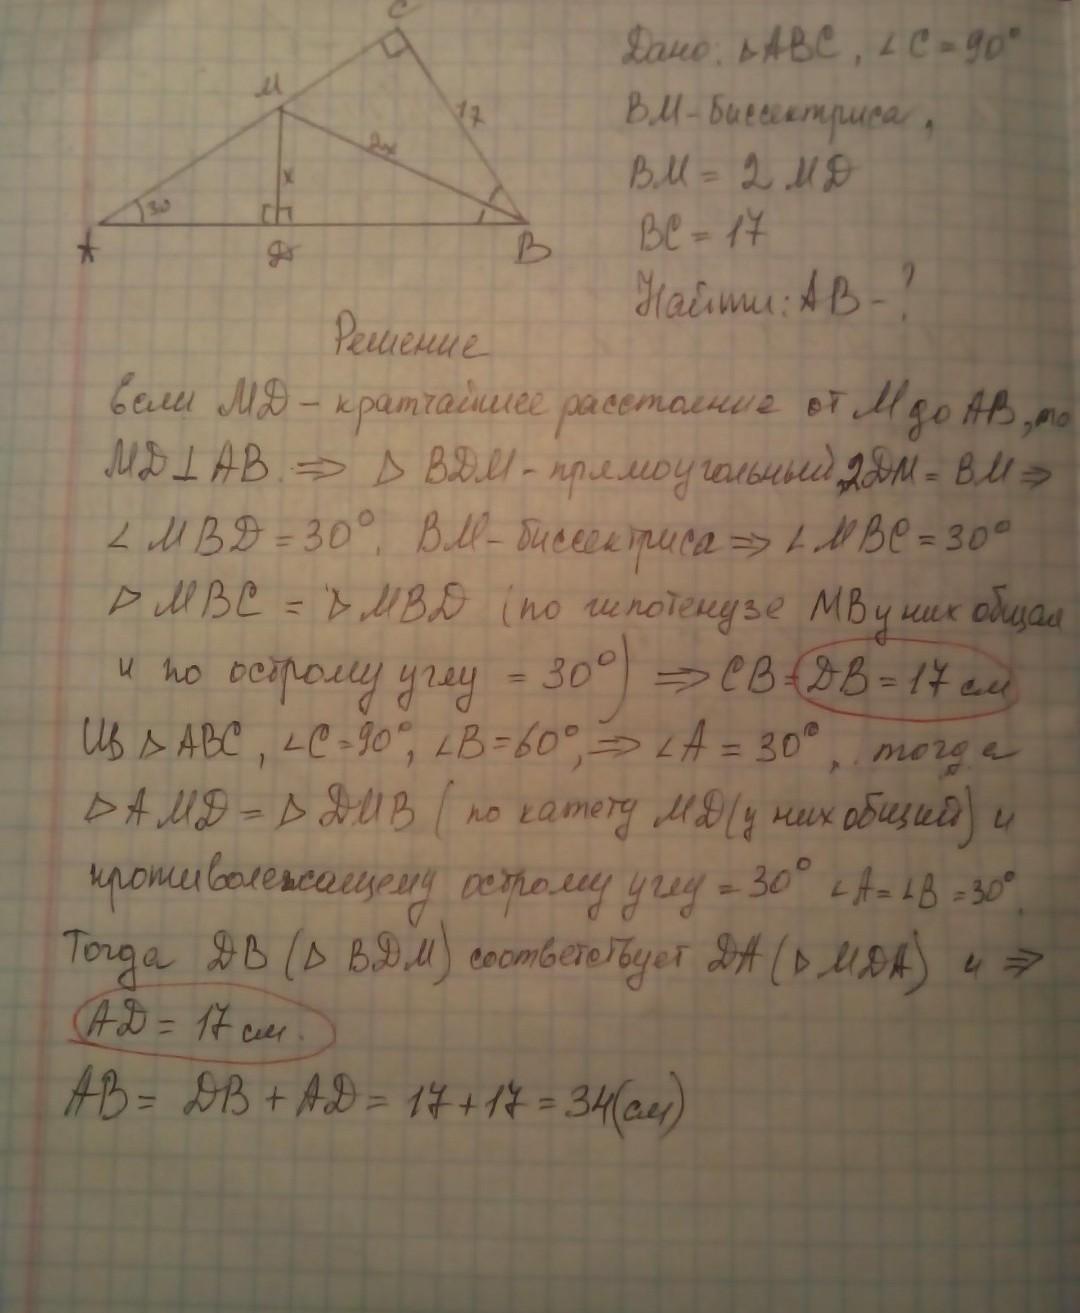 C
M
17
2x
x
30
A
D
B
Дано: △ABC, ∠C = 90°
BM - биссектриса,
BM = 2 MD
BC = 17
Найти: AB - ?
Решение
если MD - кратчайшее расстояние от M до AB, то
MD⊥AB. ⇒ △ BDM - прямоугольный, 2DM = BM ⇒
∠ MBD = 30°. BM - биссектриса ⇒ ∠MBC = 30°
△ MBC = △ MBD (по гипотенузе MB у них общая
и по острому углу = 30°) ⇒ CB = DB = 17 см
Из △ ABC, ∠C = 90°, ∠B = 60°, ⇒ ∠A = 30°, тогда
△ AMD = △ DMB (по катету MD (у них общий) и
противолежащему острому углу = 30° ∠A = ∠B = 30°.
Тогда DB (△ BDM) соответствует DA (△ MDA) и ⇒
AD = 17 см.
AB = DB + AD = 17 + 17 = 34 (см)